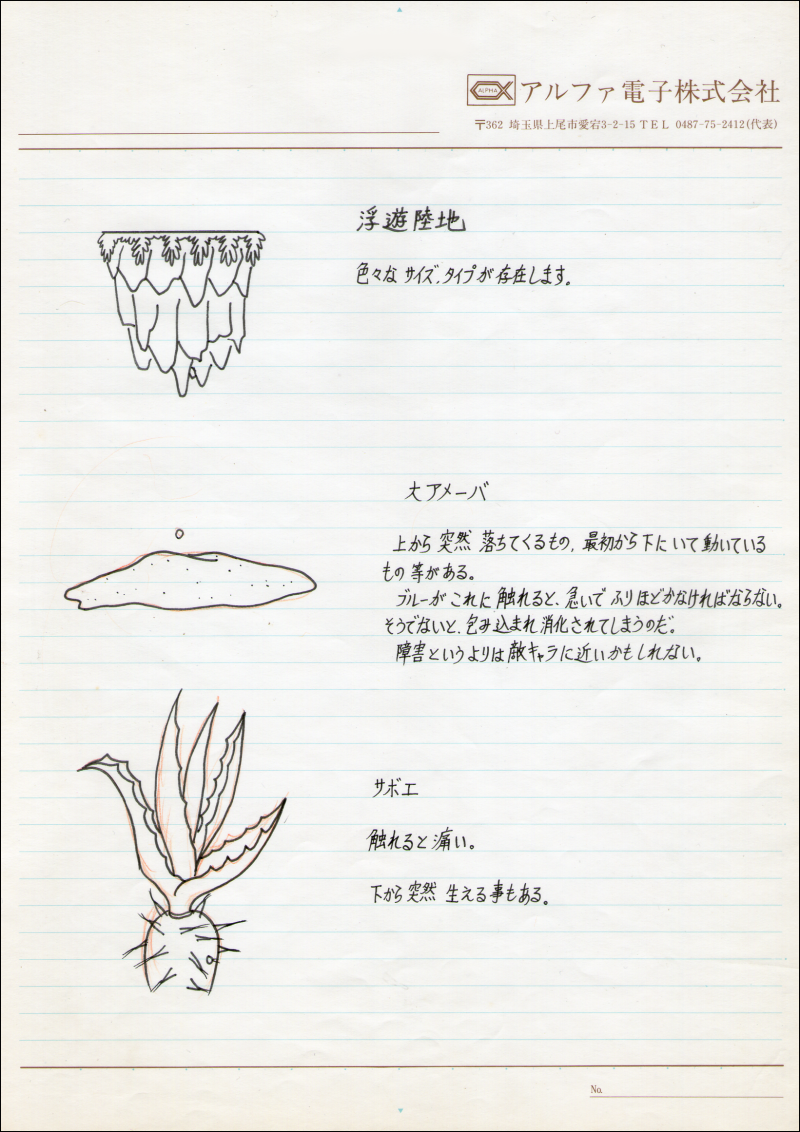 ALPHA
アルファ電子株式会社
〒362 埼玉県上尾市愛宕3-2-15 TEL 0487-75-2412(代表)
浮遊陸地
色々なサイズ、タイプが存在します。
大アメーバ
上から突然落ちてくるもの、最初から下にいて動いている
もの等がある。
ブルーがこれに触れると、急いでふりほどかなければならない。
そうでないと、包み込まれ消化されてしまうのだ。
障害というよりは敵キャラに近いかもしれない。
サボエ
触れると痛い。
下から突然生える事もある。
No.